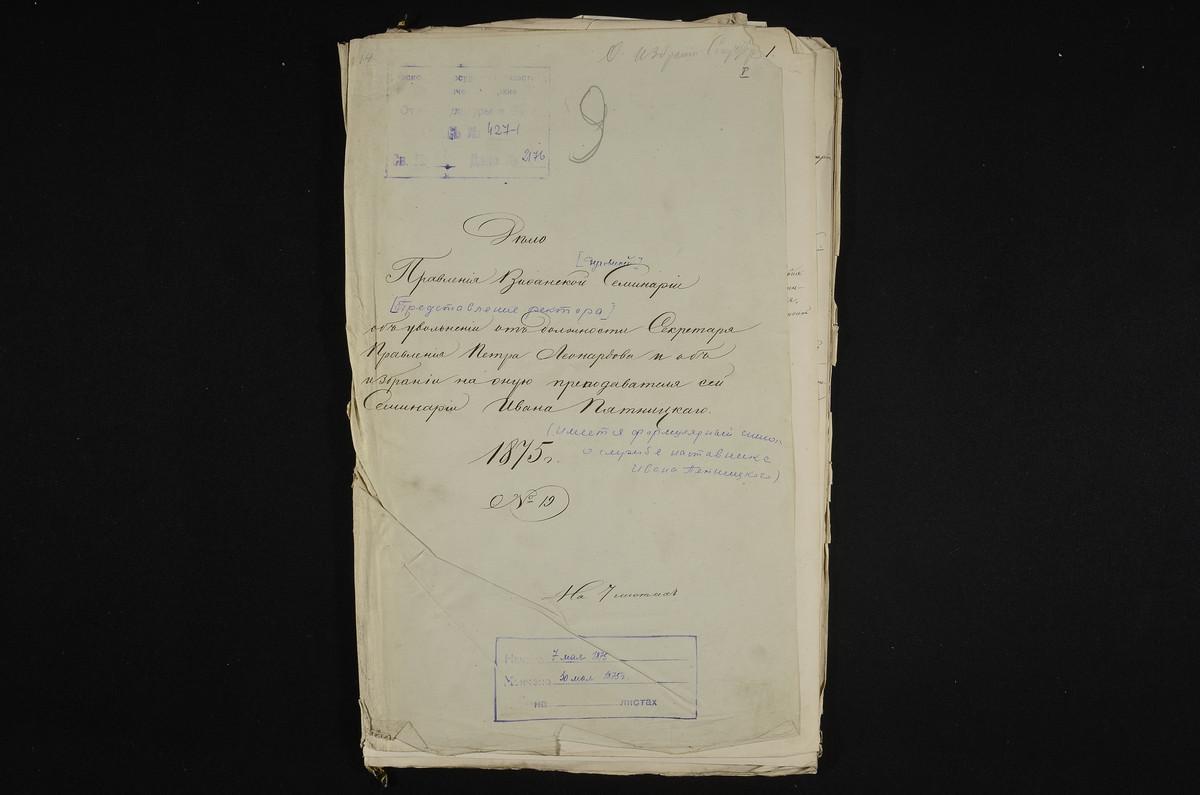 О избрании
1
9
№ 427-1
Св. № Дело № 2176
Дѣло
Правленія Виѳанской [духовной] Семинаріи
[Представление ректора]
объ увольненіи отъ должности Секретаря
Правленія Петра Леонардова и объ
избраніи на оную преподавателя сей
Семинаріи Ивана Пятницкаго.
(имеется формулярный список
о службе наставника
Ивана Пятницкого)
1875 г.
№ 19
На 7 листахъ
Начато 7 мая 1875
Кончено 30 мая 1875 г.
на листах